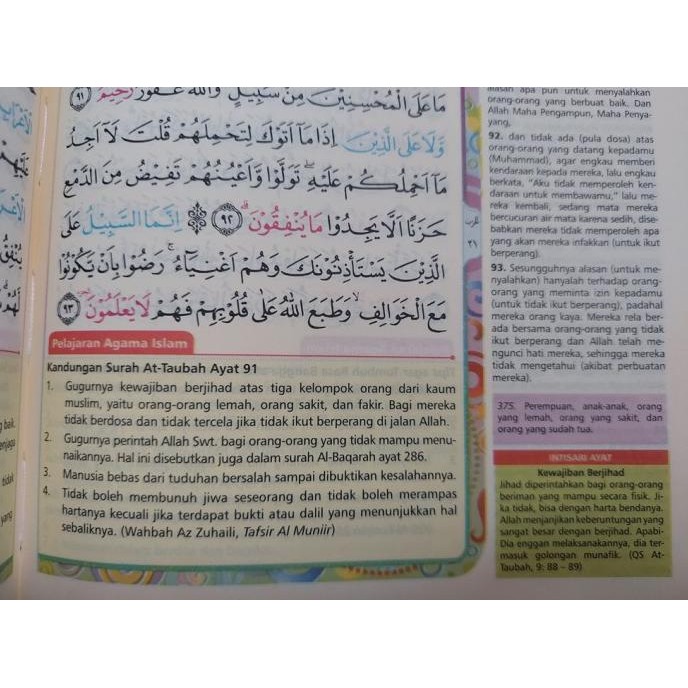 مَا عَلَى الْمُحْسِنِيْنَ مِنْ سَبِيْلٍ وَاللّٰهُ غَفُوْرٌ رَّحِيْمٌ ٩١
وَّلَا عَلَى الَّذِيْنَ اِذَا مَآ اَتَوْكَ لِتَحْمِلَهُمْ قُلْتَ لَآ اَجِدُ
مَآ اَحْمِلُكُمْ عَلَيْهِ ۖ تَوَلَّوْا وَّاَعْيُنُهُمْ تَفِيْضُ مِنَ الدَّمْعِ
حَزَنًا اَلَّا يَجِدُوْا مَا يُنْفِقُوْنَ ۗ ٩٢ اِنَّمَا السَّبِيْلُ عَلَى
الَّذِيْنَ يَسْتَأْذِنُوْنَكَ وَهُمْ اَغْنِيَاۤءُ ۚ رَضُوْا بِاَنْ يَّكُوْنُوْا
مَعَ الْخَوَالِفِ ۙ وَطَبَعَ اللّٰهُ عَلٰى قُلُوْبِهِمْ فَهُمْ لَا يَعْلَمُوْنَ ٩٣
Pelajaran Agama Islam
Kandungan Surah At-Taubah Ayat 91
1. Gugurnya kewajiban berjihad atas tiga kelompok orang dari kaum
muslim, yaitu orang-orang lemah, orang sakit, dan fakir. Bagi mereka
tidak berdosa dan tidak tercela jika tidak ikut berperang di jalan Allah.
2. Gugurnya perintah Allah Swt. bagi orang-orang yang tidak mampu menu-
naikannya. Hal ini disebutkan juga dalam surah Al-Baqarah ayat 286.
3. Manusia bebas dari tuduhan bersalah sampai dibuktikan kesalahannya.
4. Tidak boleh membunuh jiwa seseorang dan tidak boleh merampas
hartanya kecuali jika terdapat bukti atau dalil yang menunjukkan hal
sebaliknya. (Wahbah Az Zuhaili, Tafsir Al Muniir)
alasan apa pun untuk menyalahkan
orang-orang yang berbuat baik. Dan
Allah Maha Pengampun, Maha Penya-
yang,
92. dan tidak ada (pula dosa) atas
orang-orang yang datang kepadamu
(Muhammad), agar engkau memberi
kendaraan kepada mereka, lalu engkau
berkata, "Aku tidak memperoleh ken-
daraan untuk membawamu," lalu me-
reka kembali, sedang mata mereka
bercucuran air mata karena sedih, dise-
babkan mereka tidak memperoleh apa
yang akan mereka infakkan (untuk ikut
berperang).
93. Sesungguhnya alasan (untuk me-
nyalahkan) hanyalah terhadap orang-
orang yang meminta izin kepadamu
(untuk tidak ikut berperang), padahal
mereka orang kaya. Mereka rela ber-
ada bersama orang-orang yang tidak
ikut berperang dan Allah telah me-
ngunci hati mereka, sehingga mereka
tidak mengetahui (akibat perbuatan
mereka).
375. Perempuan, anak-anak, orang
yang lemah, orang yang sakit, dan
orang yang sudah tua.
INTISARI AYAT
Kewajiban Berjihad
Jihad diperintahkan bagi orang-orang
beriman yang mampu secara fisik. Ji-
ka tidak, bisa dengan harta bendanya.
Allah menjanjikan keberuntungan yang
sangat besar dengan berjihad. Apabi-
la enggan melaksanakannya, dia ter-
masuk golongan munafik. (QS At-
Taubah, 9: 88 – 89)